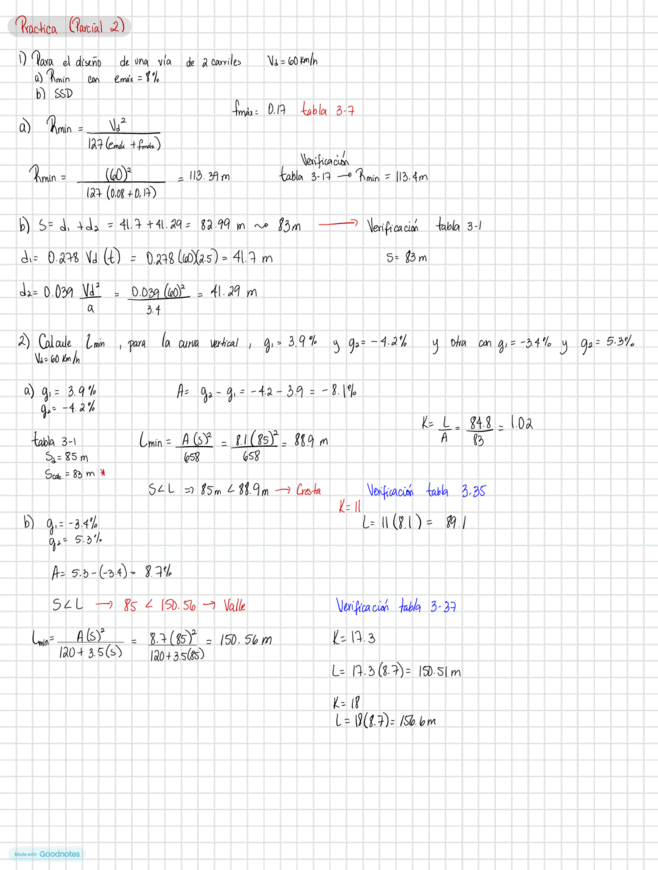 Practica (Parcial 2)
1) Para el diseño de una vía de 2 carriles Vd = 60 km/h
a) Rmin con emáx = 8%
b) SSD
fmáx = 0.17 tabla 3-7
a) Rmin = Vd² / 127(emáx + fmáx)
Rmin = (60)² / 127 (0.08 + 0.17) = 113.39 m
Verificación
tabla 3-17 → Rmin = 113.4m
b) S = d₁ + d₂ = 41.7 + 41.29 = 82.99 m ~ 83m → Verificación tabla 3-1
d₁ = 0.278 Vd (t) = 0.278 (60)(2.5) = 41.7 m
S = 83 m
d₂ = 0.039 Vd² / a = 0.039 (60)² / 3.4 = 41.29 m
2) Calcule Lmin, para la curva vertical, g₁ = 3.9% y g₂ = -4.2% y otra con g₁ = -3.4% y g₂ = 5.3%
Vd = 60 km/h
a) g₁ = 3.9%
g₂ = -4.2%
A = g₂ - g₁ = -4.2 - 3.9 = -8.1%
K = L / A = 84.8 / 83 = 1.02
tabla 3-1
S = 85 m
Scalc = 83 m *
Lmin = A(S)² / 658 = 8.1 (85)² / 658 = 88.9 m
S<L ⇒ 85m < 88.9m → Cresta
Verificación tabla 3.35
K = 11
L = 11 (8.1) = 89.1
b) g₁ = -3.4%
g₂ = 5.3%
A = 5.3 - (-3.4) = 8.7%
S<L → 85 < 150.56 → Valle
Lmin = A(S)² / 120 + 3.5(S) = 8.7 (85)² / 120 + 3.5(85) = 150.56 m
Verificación tabla 3-37
K = 17.3
L = 17.3 (8.7) = 150.51 m
K = 18
L = 18(8.7) = 156.6 m
Made with Goodnotes